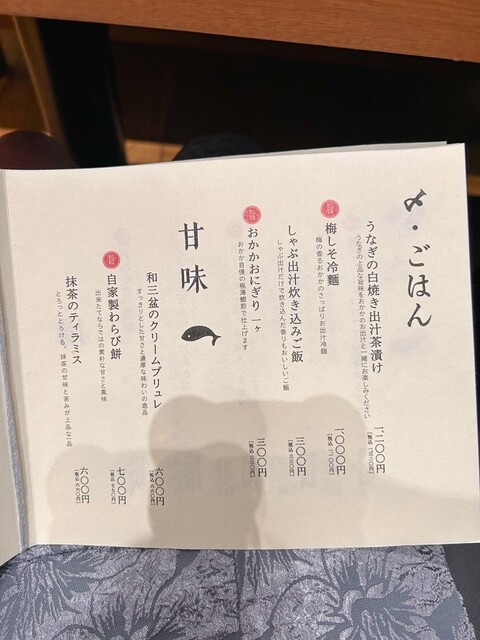 〆・ごはん
うなぎの白焼き出汁茶漬け
うなぎの上品な旨味をおかかのお出汁と一緒にお楽しみください
一、二〇〇円
旨
梅しそ冷麺
梅の香るおかかのさっぱりお出汁冷麺
一、〇〇〇円
(税込 一、一〇〇円)
しゃぶ出汁炊き込みご飯
しゃぶ出汁だけで炊き込んだ香りもおいしいご飯
三〇〇円
(税込 三三〇円)
旨
おかかおにぎり 一ヶ
おかか自慢の極薄鰹節で仕上げます
三〇〇円
(税込 三三〇円)
甘味
和三盆のクリームブリュレ
すっきりとした甘さと濃厚な味わいの逸品
六〇〇円
(税込 六六〇円)
旨
自家製わらび餅
出来たてならではの素朴な甘さと風味
七〇〇円
(税込 七七〇円)
抹茶のティラミス
とろっととろける。抹茶の甘味と苦みが上品な一品
六〇〇円
(税込 六六〇円)